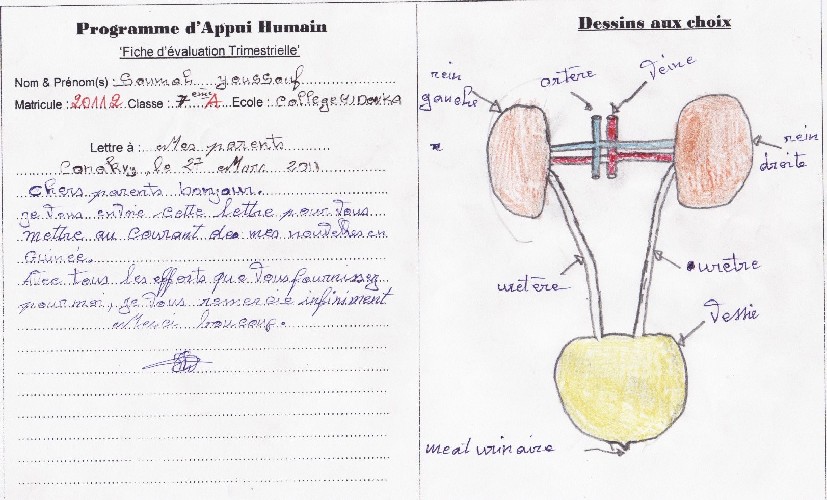 Programme d'Appui Humain
'Fiche d'évaluation Trimestrielle'
Nom & Prénom(s) : Soumah Youssouf
Matricule : 20112 Classe : 7ème A Ecole : College W Donka
Lettre à : Mes parents
Conakry, le 27 Mars 2011
Chers parents bonjour.
je vous envoie cette lettre pour vous
mettre au courant de mes nouvelles en
Guinée.
Avec tous les efforts que vous fournissez
pour moi, je vous remercie infiniment
Merci boucoup.
Dessins aux choix
rein
gauche
artère
veine
rein
droite
uretère
uretre
vessie
meat urinaire